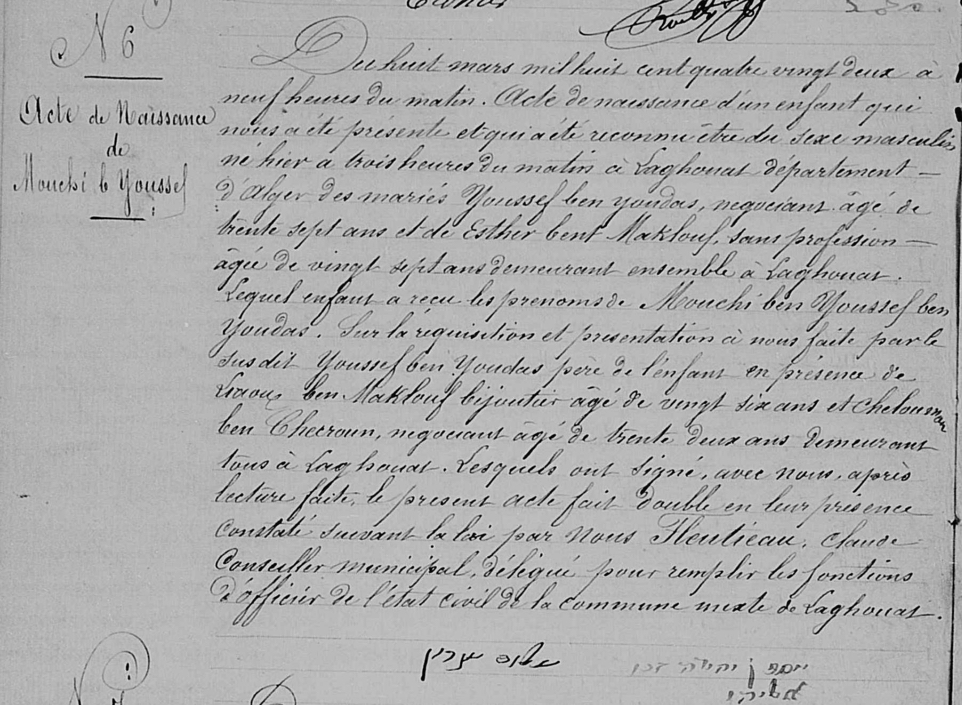 N 6
Acte de Naissance
de
Mouchi b Youssef
Du huit mars mil huit cent quatre vingt deux à
neuf heures du matin. Acte de naissance d'un enfant qui
nous a été présenté et qui a été reconnu être du sexe masculin,
né hier a trois heures du matin à Laghouat département —
d'Alger des mariés Youssef ben Youdas, negociant âgé de
trente sept ans et de Esther bent Maklouf, sans profession —
âgée de vingt sept ans demeurant ensemble à Laghouat.
Lequel enfant a reçu les prenoms de Mouchi ben Youssef ben
Youdas. Sur la réquisition et presentation à nous faite par le
susdit Youssef ben Youdas père de l'enfant en présence de
ben Maklouf bijoutier âgé de vingt six ans et Cheloumou
ben Checroun, negociant âgé de trente deux ans demeurant
tous à Laghouat. Lesquels ont signé, avec nous, après
lecture faite, le present acte fait double en leur présence
constaté suivant la loi par Nous Fleutieau, Claude
Conseiller municipal, délégué pour remplir les fonctions
d'officier de l'état civil de la commune mixte de Laghouat.